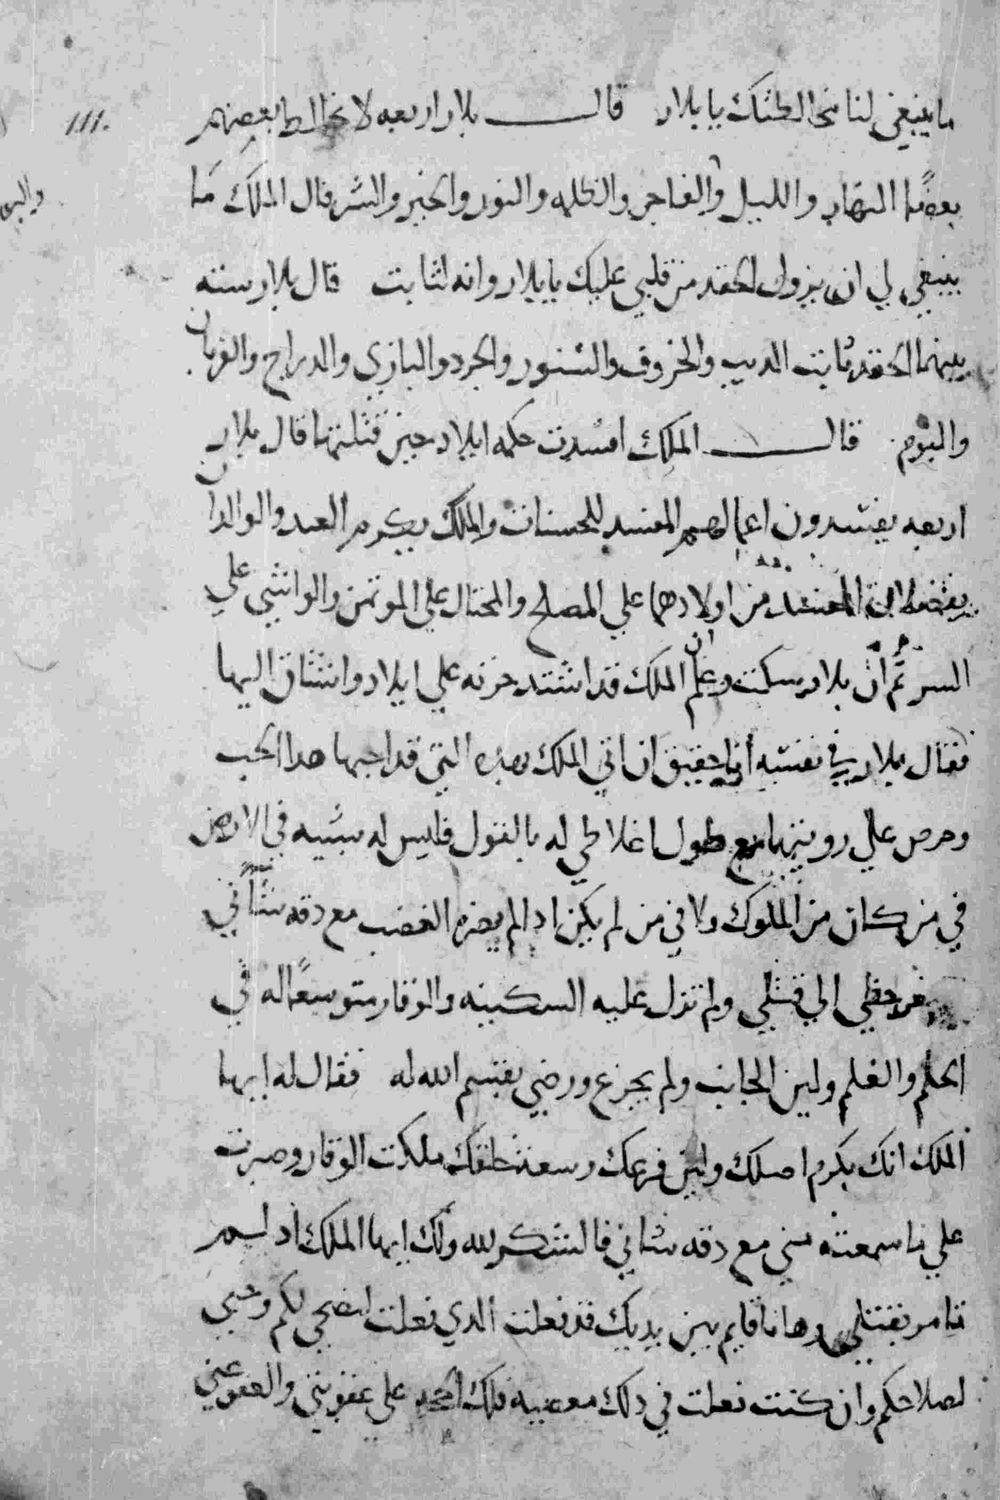 ما ينبغي لنا مخالطتك يا بلار قال بلار اربعه لا يخالط بعضهم
بعضًا النهار والليل والفاجر والظلمه والنور والخير والشر فقال الملك مَا
ينبغي لي ان يزول الحقد من قلبي عليك يا بلار وانه لثابت قال بلار سته
بينهما الحقد ثابت الديب والخروف والسنور والجرد والبازي والدراج والغربان
والبوم قال الملك افسدت حكمه ايلاد حين قتلتها قال بلار
اربعه يفسدون اعمالهم المفسد للحسنات والملك يكرم العبد والوالدان
المفسد من اولادهما علي المصلح والمحتال علي الموتمن والواشي علي
السر ثم ان بلار سكت وعلم ان الملك قد اشتد حزنه علي ايلاد واشتاق اليها
فقال بلار في نفسه أنا حقيق ان اتي الملك بهذه التي قد احبها هدا الحب
وحرص علي رويتها مع طول اغلاطي له بالقول فليس له شبيه في الارض
في من كان من الملوك ولا في من لم يكن اد لم يضره الغضب مع دقه شأني
لفظي الي قتلي ولم تزل عليه السكينه والوقار متوسعًا له في
الحلم والعلم ولين الجانب ولم يجزع ورضي بقسم الله له فقال له ايها
الملك انك بكرم اصلك ولين فرعك وسعة خلقك ملكت الوقار وصبرت
علي ما سمعته مني مع دقه شاني فالشكر لله ولك ايها الملك اد لم
تامر بقتلي وها انا قايم بين يديك قد فعلت الدي فعلت لنصحي لكم وحبي
لصلاحكم وان كنت فعلت في دلك معصيه فلك الحجه علي عقوبتي والعفو عني